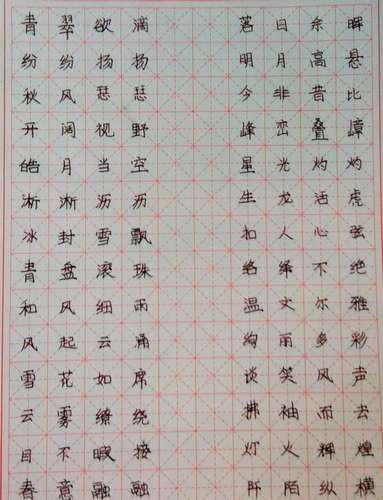 青翠欲滴 落日余晖
纷纷扬扬 明月高悬
秋风瑟瑟 今非昔比
开阔视野 峰峦叠嶂
皓月当空 星光灼灼
淅淅沥沥 生龙活虎
冰封雪飘 扣人心弦
青盘滚珠 络绎不绝
和风细雨 温文尔雅
风起云涌 绚丽多彩
雪花如席 谈笑风声
云雾缭绕 拂袖而去
目不暇接 灯火辉煌
春意融融 阡陌纵横